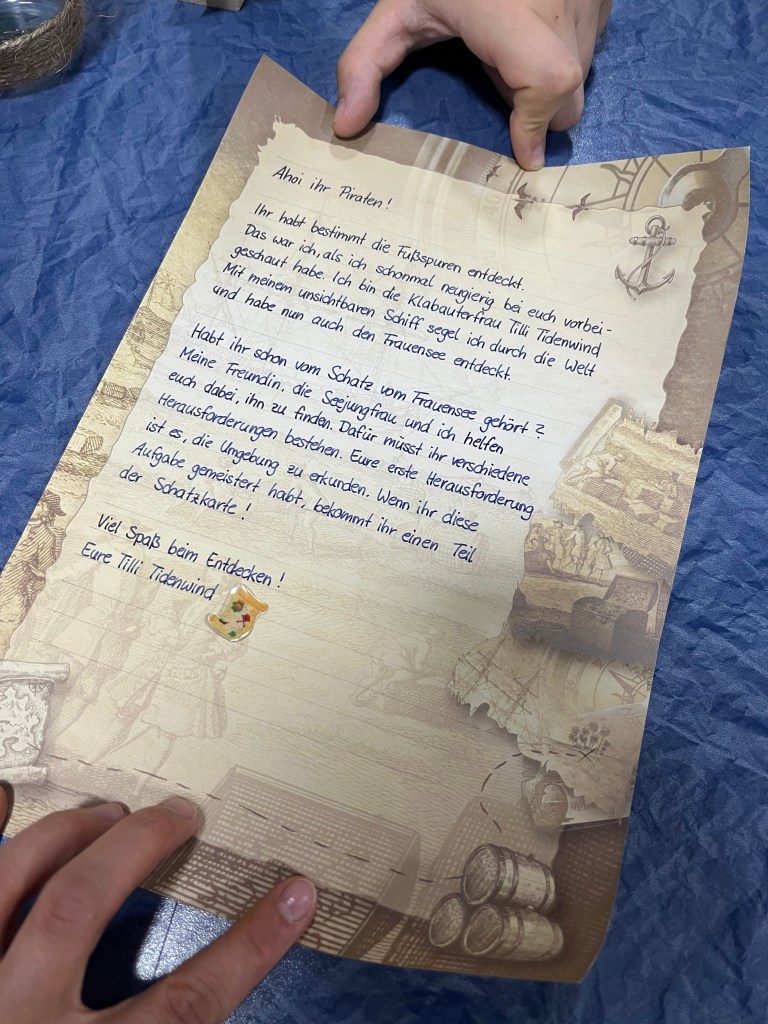 Ahoi ihr Piraten!
Ihr habt bestimmt die Fußspuren entdeckt.
Das war ich, als ich schonmal neugierig bei euch vorbei-
geschaut habe. Ich bin die Klabauterfrau Tilli Tidenwind
Mit meinem unsichtbaren Schiff segel ich durch die Welt
und habe nun auch den Frauensee entdeckt.
Habt ihr schon vom Schatz vom Frauensee gehört?
Meine Freundin, die Seejungfrau und ich helfen
euch dabei, ihn zu finden. Dafür müsst ihr verschiedene
Herausforderungen bestehen. Eure erste Herausforderung
ist es, die Umgebung zu erkunden. Wenn ihr diese
Aufgabe gemeistert habt, bekommt ihr einen Teil
der Schatzkarte!
Viel Spaß beim Entdecken!
Eure Tilli Tidenwind